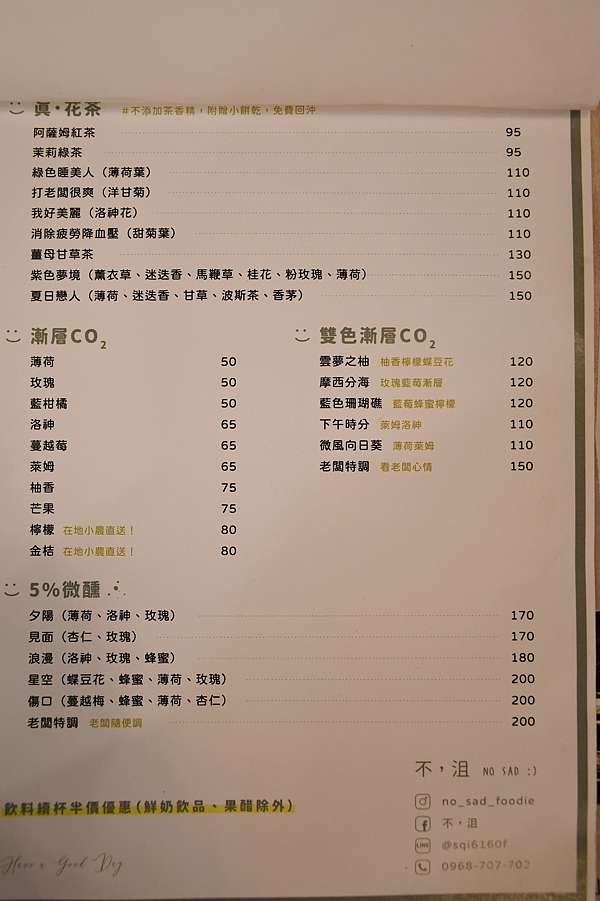 真・花茶 #不添加茶香精，附贈小餅乾，免費回沖
阿薩姆紅茶 95
茉莉綠茶 95
綠色睡美人（薄荷葉） 110
打老闆很爽（洋甘菊） 110
我好美麗（洛神花） 110
消除疲勞降血壓（甜菊葉） 110
薑母甘草茶 130
紫色夢境（薰衣草、迷迭香、馬鞭草、桂花、粉玫瑰、薄荷） 150
夏日戀人（薄荷、迷迭香、甘草、波斯茶、香茅） 150
漸層CO2
薄荷 50
玫瑰 50
藍柑橘 50
洛神 65
蔓越莓 65
萊姆 65
柚香 75
芒果 75
檸檬 在地小農直送！ 80
金桔 在地小農直送！ 80
雙色漸層CO2
雲夢之柚 柚香檸檬蝶豆花 120
摩西分海 玫瑰藍莓漸層 120
藍色珊瑚礁 藍莓蜂蜜檸檬 120
下午時分 萊姆洛神 110
微風向日葵 薄荷萊姆 110
老闆特調 看老闆心情 150
5%微醺
夕陽（薄荷、洛神、玫瑰） 170
見面（杏仁、玫瑰） 170
浪漫（洛神、玫瑰、蜂蜜） 180
星空（蝶豆花、蜂蜜、薄荷、玫瑰） 200
傷口（蔓越梅、蜂蜜、薄荷、杏仁） 200
老闆特調 老闆隨便調 200
飲料續杯半價優惠（鮮奶飲品、果醋除外）
Have a Good Day
不，沮 NO SAD :)
no_sad_foodie
不，沮
LINE @sqi6160f
0968-707-702